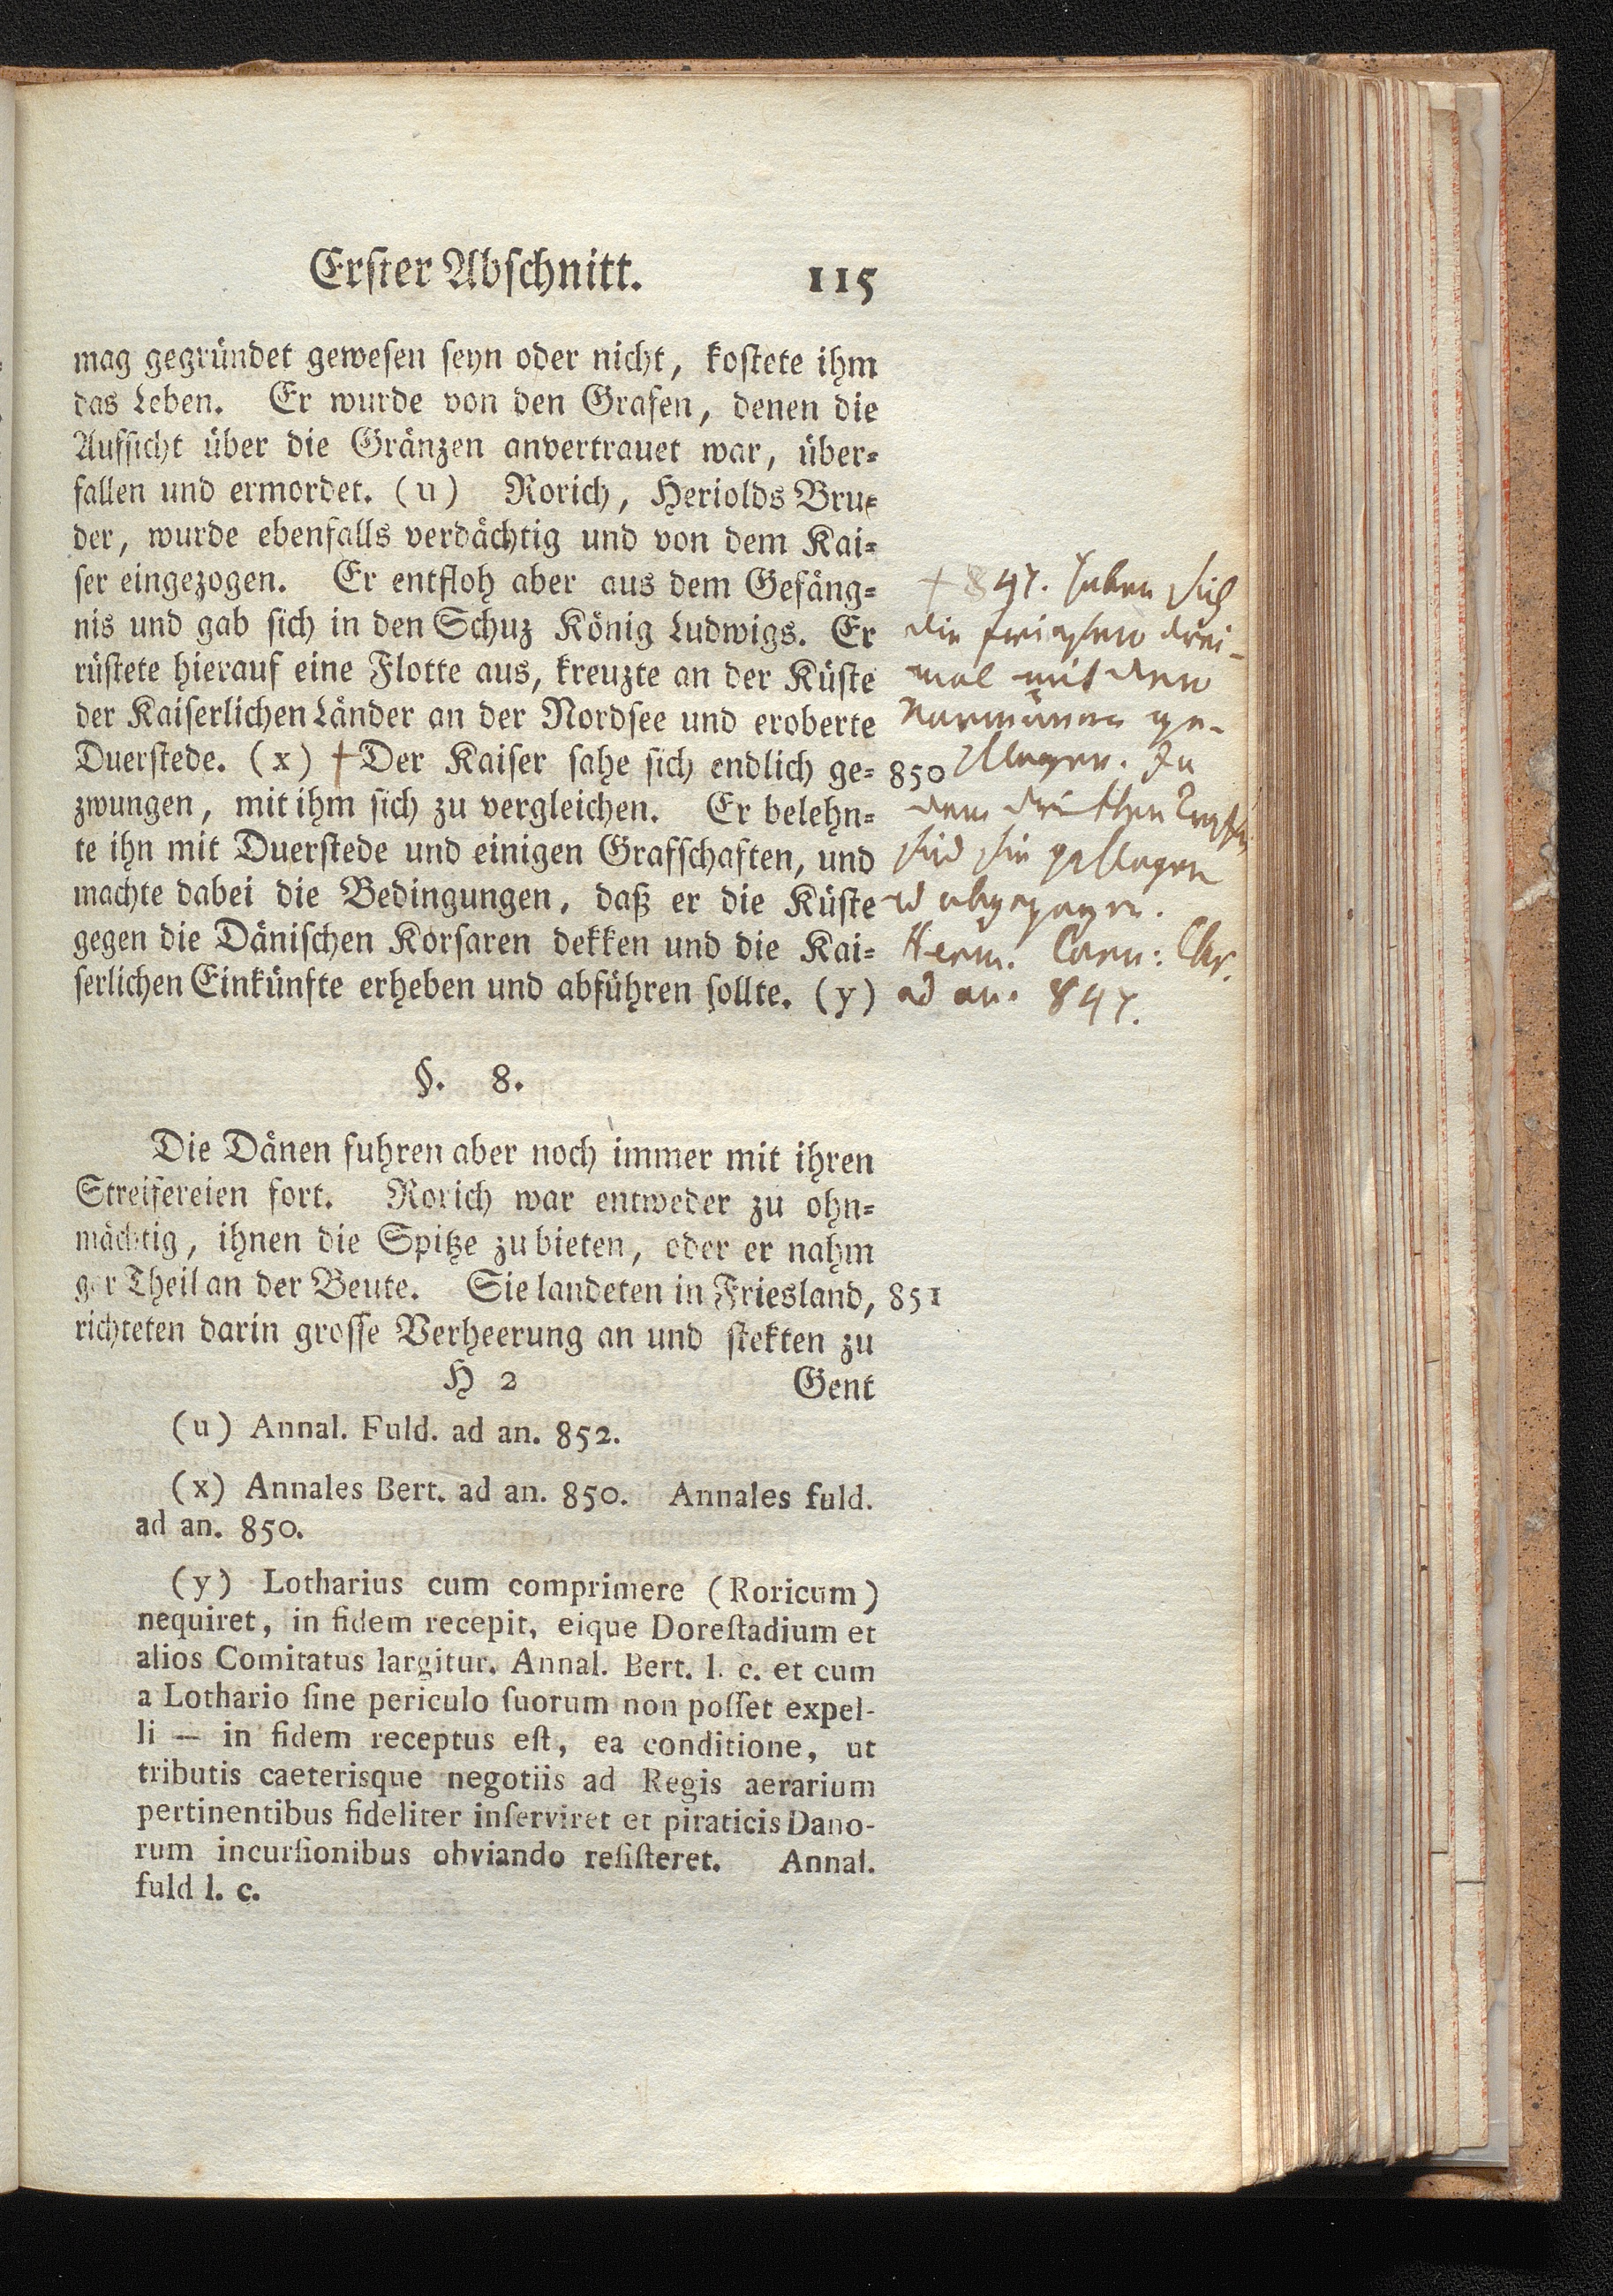 Erster Abschnitt. 115
mag gegründet gewesen seyn oder nicht, kostete ihm
das Leben. Er wurde von den Grafen, denen die
Aufsicht über die Gränzen anvertrauet war, über-
fallen und ermordet. (u) Rorich, Heriolds Bru-
der, wurde ebenfalls verdächtig und von dem Kai-
ser eingezogen. Er entfloh aber aus dem Gefäng-
nis und gab sich in den Schuz König Ludwigs. Er
rüstete hierauf eine Flotte aus, kreuzte an der Küste
der Kaiserlichen Länder an der Nordsee und eroberte
Duerstede. (x) † Der Kaiser sahe sich endlich ge- 850
zwungen, mit ihm sich zu vergleichen. Er belehn-
te ihn mit Duerstede und einigen Grafschaften, und
machte dabei die Bedingungen, daß er die Küste
gegen die Dänischen Korsaren dekken und die Kai-
serlichen Einkünfte erheben und abführen sollte. (y)
† 847. haben sich
die friesen drei-
mal mit den
Normännen ge-
schlagen. In
dem dritthen
sind sie geschlagen
Herm. Corn: Chr.
ad an. 847.
§. 8.
Die Dänen fuhren aber noch immer mit ihren
Streifereien fort. Rorich war entweder zu ohn-
mächtig, ihnen die Spitze zu bieten, oder er nahm
gar Theil an der Beute. Sie landeten in Friesland, 851
richteten darin grosse Verheerung an und stekten zu
H 2 Gent
(u) Annal. Fuld. ad an. 852.
(x) Annales Bert. ad an. 850. Annales fuld.
ad an. 850.
(y) Lotharius cum comprimere (Roricum)
nequiret, in fidem recepit, eique Doreſtadium et
alios Comitatus largitur. Annal. Bert. l. c. et cum
a Lothario ſine periculo ſuorum non poſſet expel-
li — in fidem receptus eſt, ea conditione, ut
tributis caeterisque negotiis ad Regis aerarium
pertinentibus fideliter inſerviret et piraticis Dano-
rum incurſionibus obviando reſiſteret. Annal.
fuld l. c.